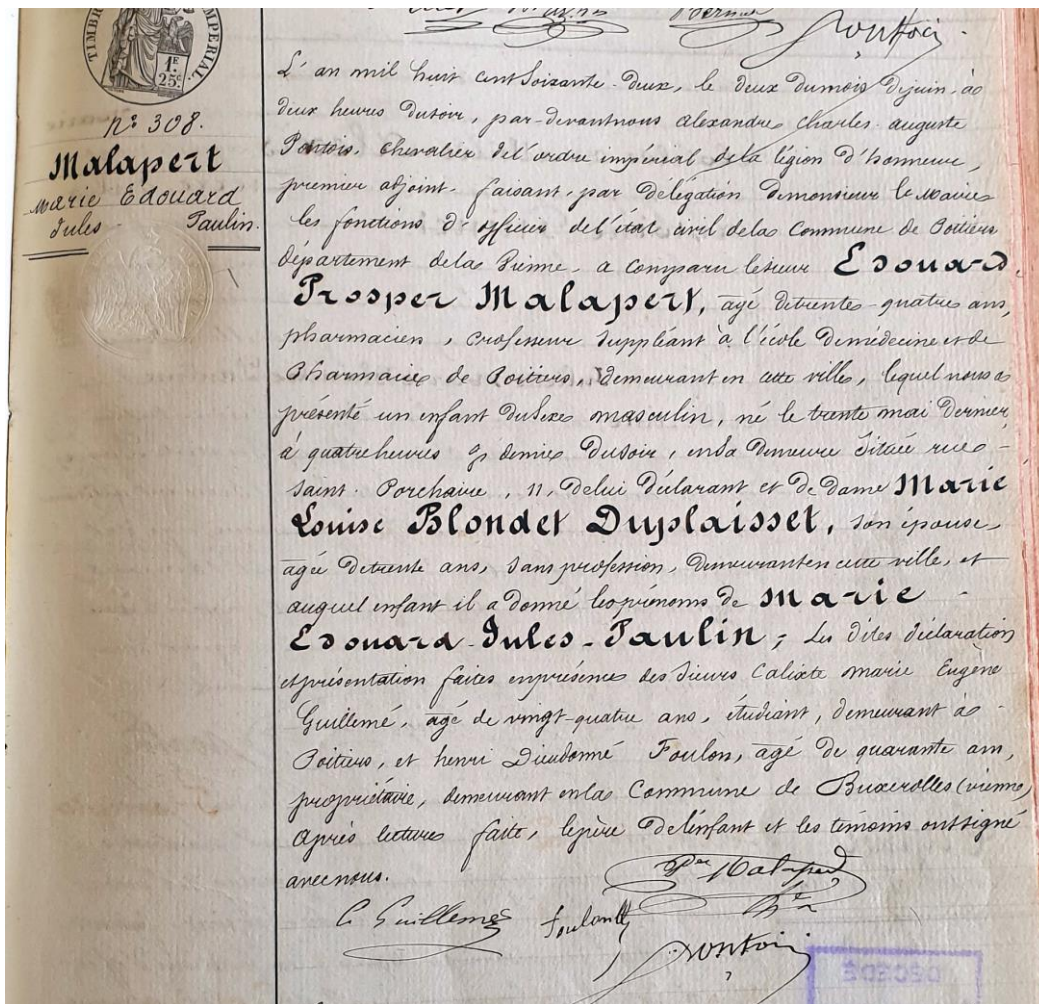 Pontois
TIMBRE IMPERIAL
1F
25c
L'an mil huit cent Soixante-deux, le deux du mois de juin, à
deux heures du soir, par-devant nous alexandre Charles-auguste
Pontois, chevalier de l'ordre impérial de la légion d'honneur,
premier adjoint, faisant, par délégation de monsieur le maire
les fonctions d'officier de l'état civil de la Commune de Poitiers
département de la Vienne, a comparu le sieur Edouard
Prosper Malapert, agé de trente-quatre ans,
pharmacien, professeur Suppléant à l'école de médecine et de
Pharmacie de Poitiers, demeurant en cette ville, lequel nous a
présenté un enfant du Sexe masculin, né le trente mai dernier
à quatre heures & demie du soir, en sa demeure située rue
Saint-Porchaire, 11, de lui déclarant et de dame Marie
Louise Blondet Duplaisset, son épouse
agée de trente ans, Sans profession, demeurant en cette ville, et
auquel enfant il a donné les prénoms de Marie
Edouard-Jules-Paulin; Les dites déclaration
et présentation faites en présence des Sieurs Calixte marie Eugène
Guillemé, agé de vingt-quatre ans, étudiant, demeurant à
Poitiers, et henri Dieudonné Foulon, agé de quarante ans,
propriétaire, demeurant en la Commune de Buxerolles (vienne)
Après lecture faite, le père de l'enfant et les témoins ont signé
avec nous.
n° 308.
Malapert
Marie Edouard
Jules Paulin.
Malapert
C. Guillemé Foulon
Pontois
DECEDE